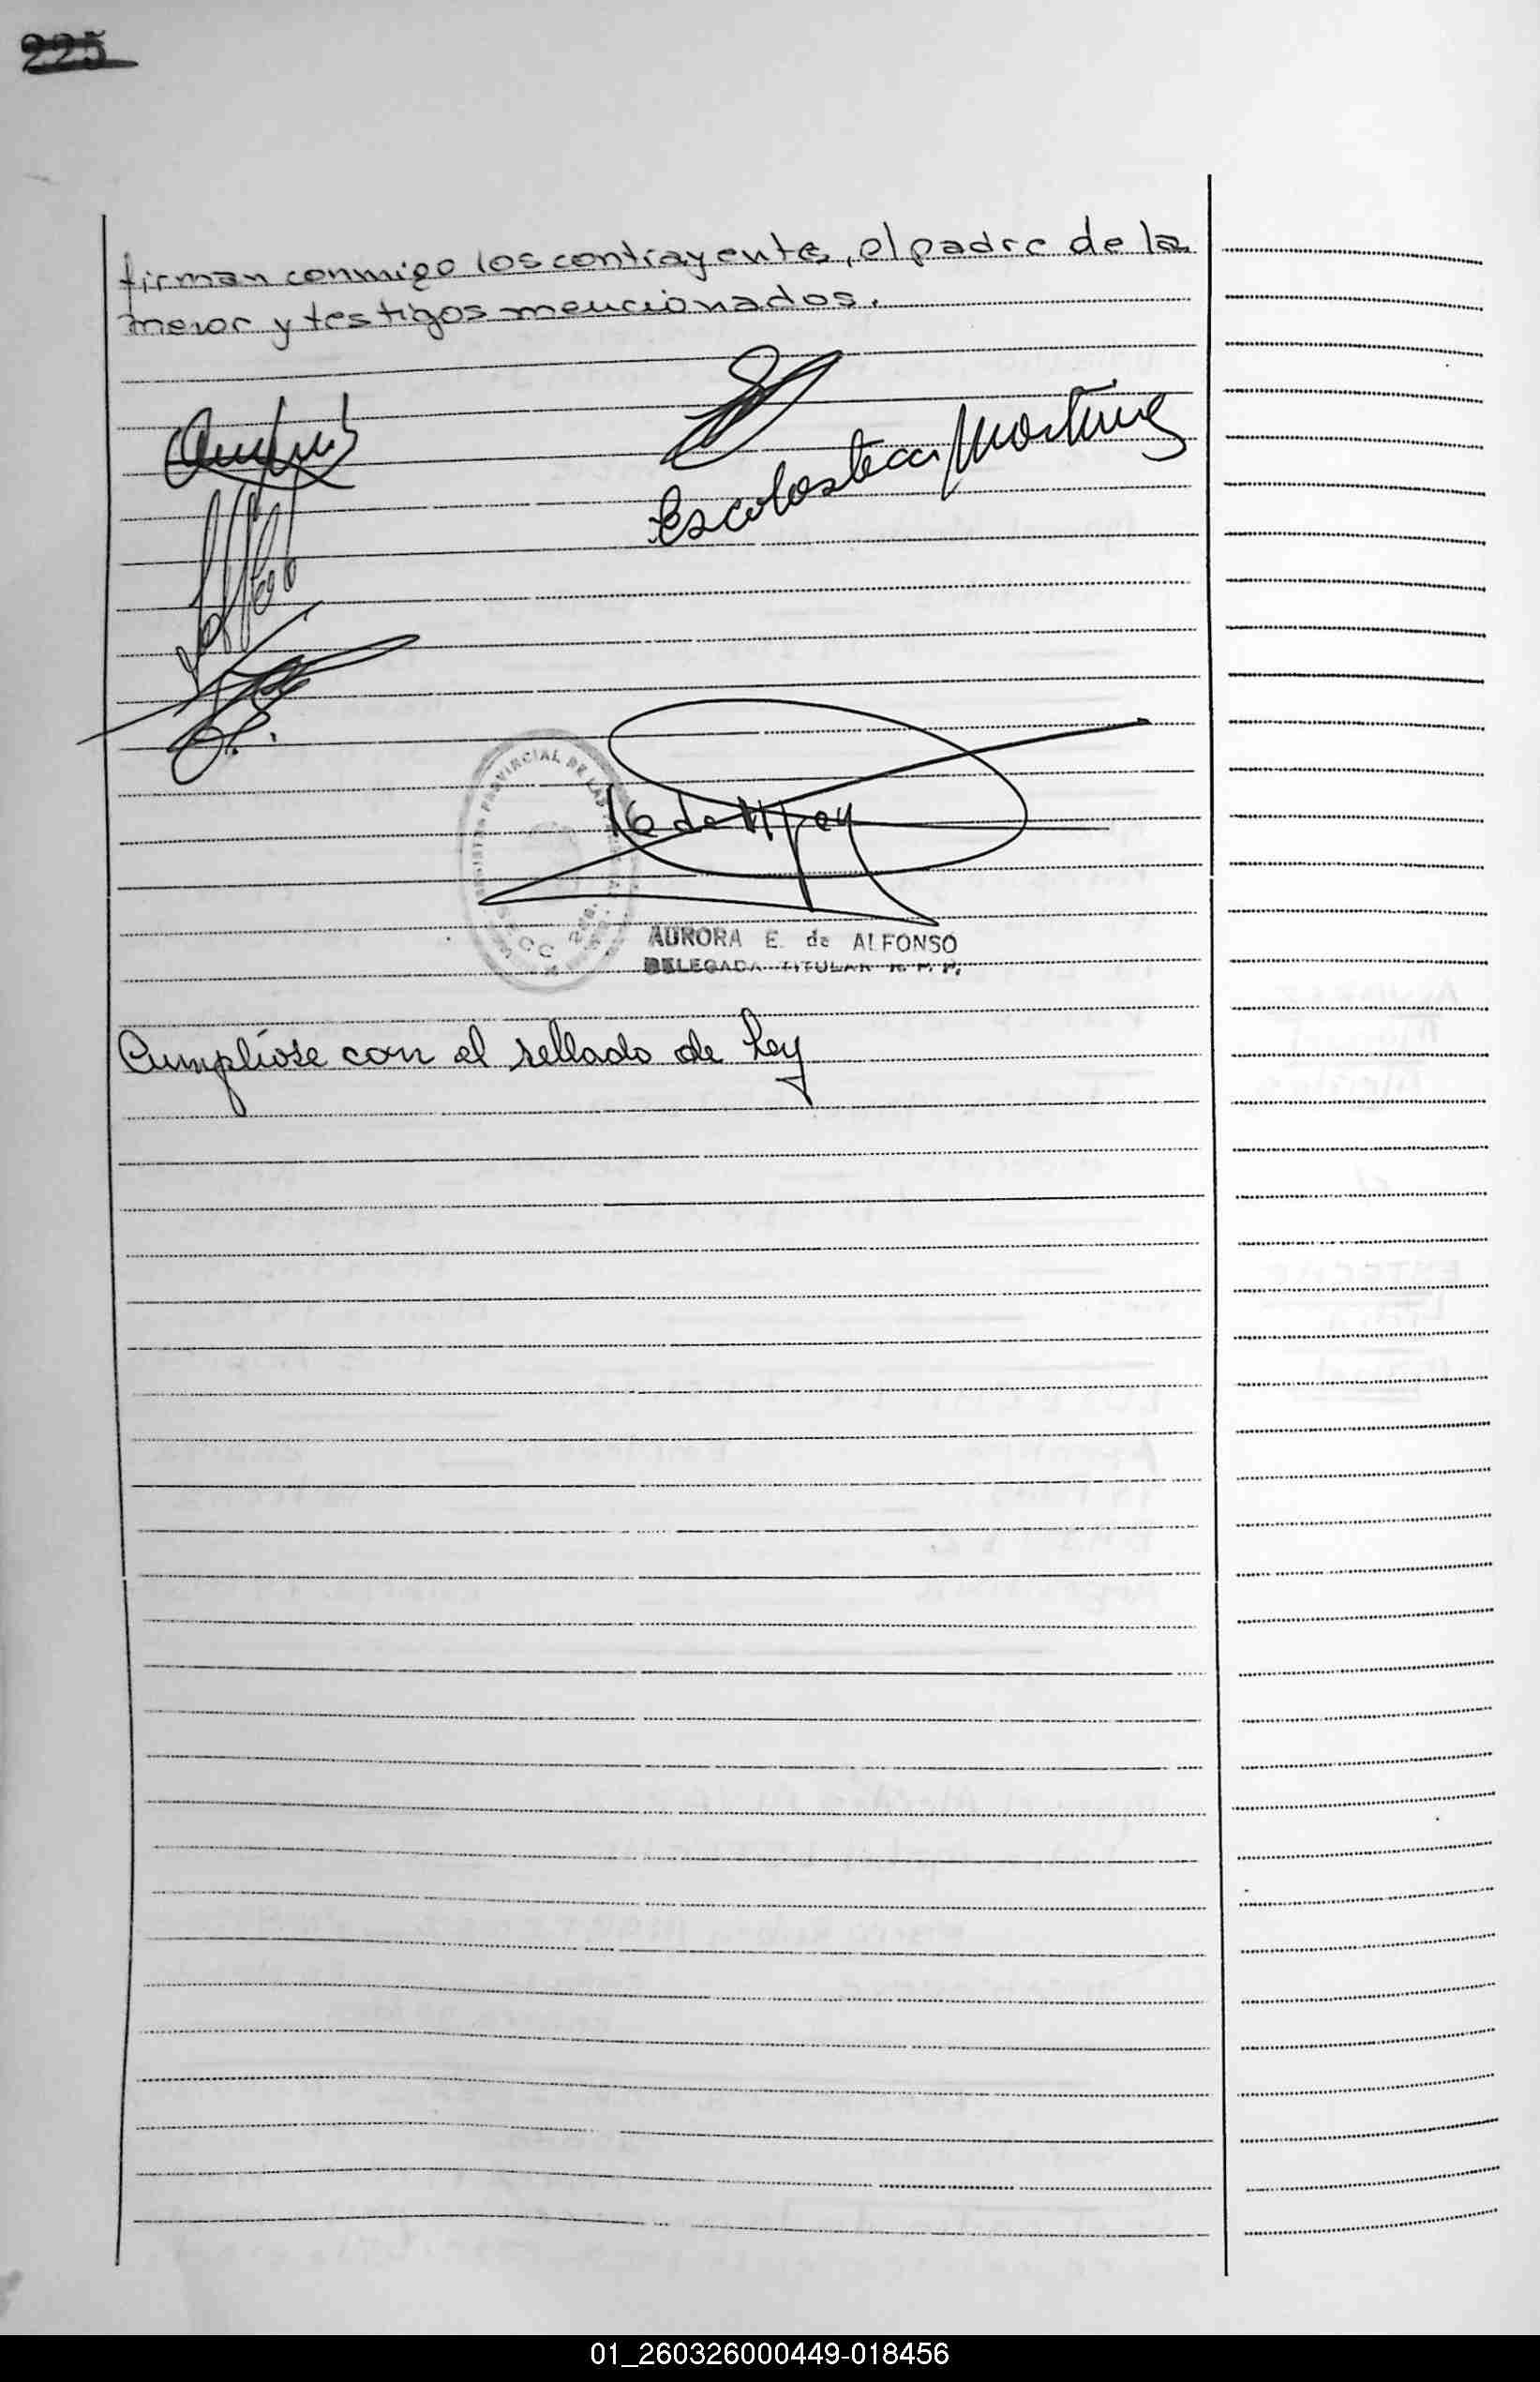 225
firman conmigo los contrayente, el padre de la
menor y testigos mencionados.
Escolastica Martinez
REGISTRO PROVINCIAL DE LAS
AURORA E. de ALFONSO
DELEGADA TITULAR R. P. P.
Cumplióse con el sellado de Ley
01_260326000449-018456